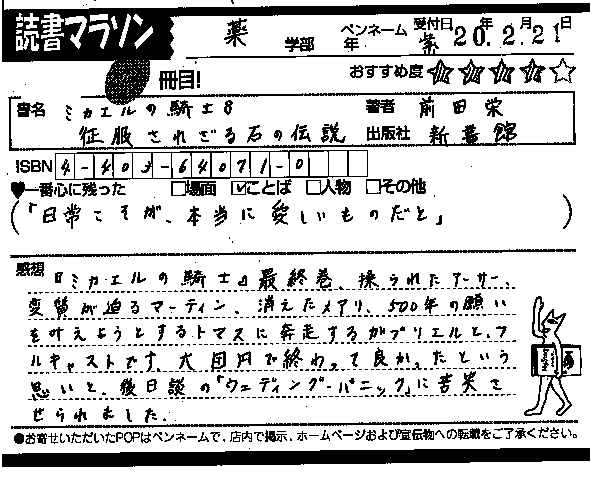 読書マラソン
冊目!
薬 学部 年 ペンネーム 紫 受付日 20年2月21日
おすすめ度 ★★★★☆
書名 ミカエルの騎士8 著者 前田栄
征服されざる石の伝説 出版社 新書館
ISBN 4-403-64071-0
♥一番心に残った □場面 ☑ことば □人物 □その他
(「日常こそが、本当に愛しいものだと」)
感想 『ミカエルの騎士』最終巻、操られたアーサー、
変質が迫るマーティン、消えたメアリ、500年の願い
を叶えようとするトマスに奔走するガブリエルと、フ
ルキャストです。大団円で終わって良かったという
思いと、後日談の「ウェディング・パニック」に苦笑さ
せられました。
●お寄せいただいたPOPはペンネームで、店内で掲示、ホームページおよび宣伝物への転載をご了承ください。